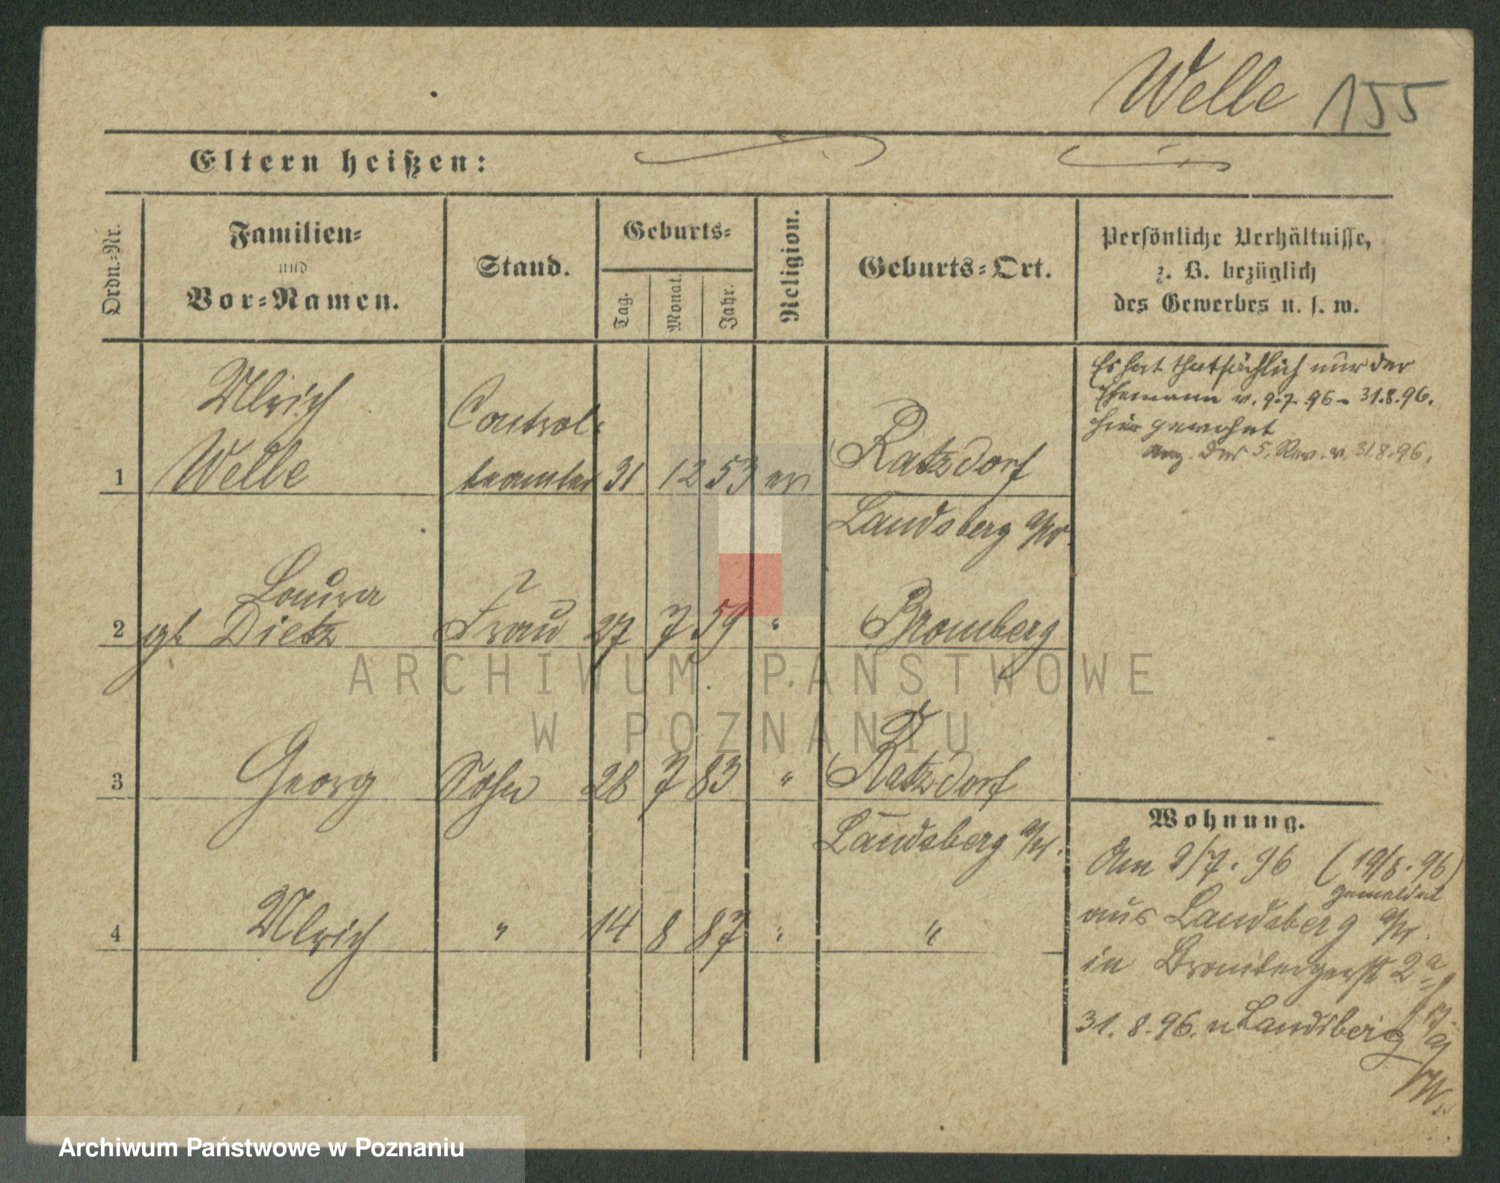 Welle 155
Eltern heißen:
Ordn.-Nr.
Familien-
und
Vor-Namen.
Stand.
Geburts-
Tag.
Monat.
Jahr.
Religion.
Geburts-Ort.
Persönliche Verhältnisse,
z. B. bezüglich
des Gewerbes u. s. w.
Es hat thatsächlich nur der
Ehemann v. 9.7.96 - 31.8.96.
hier gewohnt
31.8.96.
Ulrich Control-
1 Welle beamter 31 12 53 ev Ratzdorf
Landsberg a/W.
Laura
2 gb Dietz Frau 27 7 59 " Bromberg
3 Georg Sohn 28 7 83 " Ratzdorf
Landsberg a/W.
4 Ulrich " 14 8 87 " "
Wohnung.
Am 9/7. 96 (19/8. 96)
gemeldet
aus Landsberg a/W.
in Brombergerstr 2a
31.8.96. n Landsberg
a/W.
ARCHIWUM PAŃSTWOWE
W POZNANIU
Archiwum Państwowe w Poznaniu